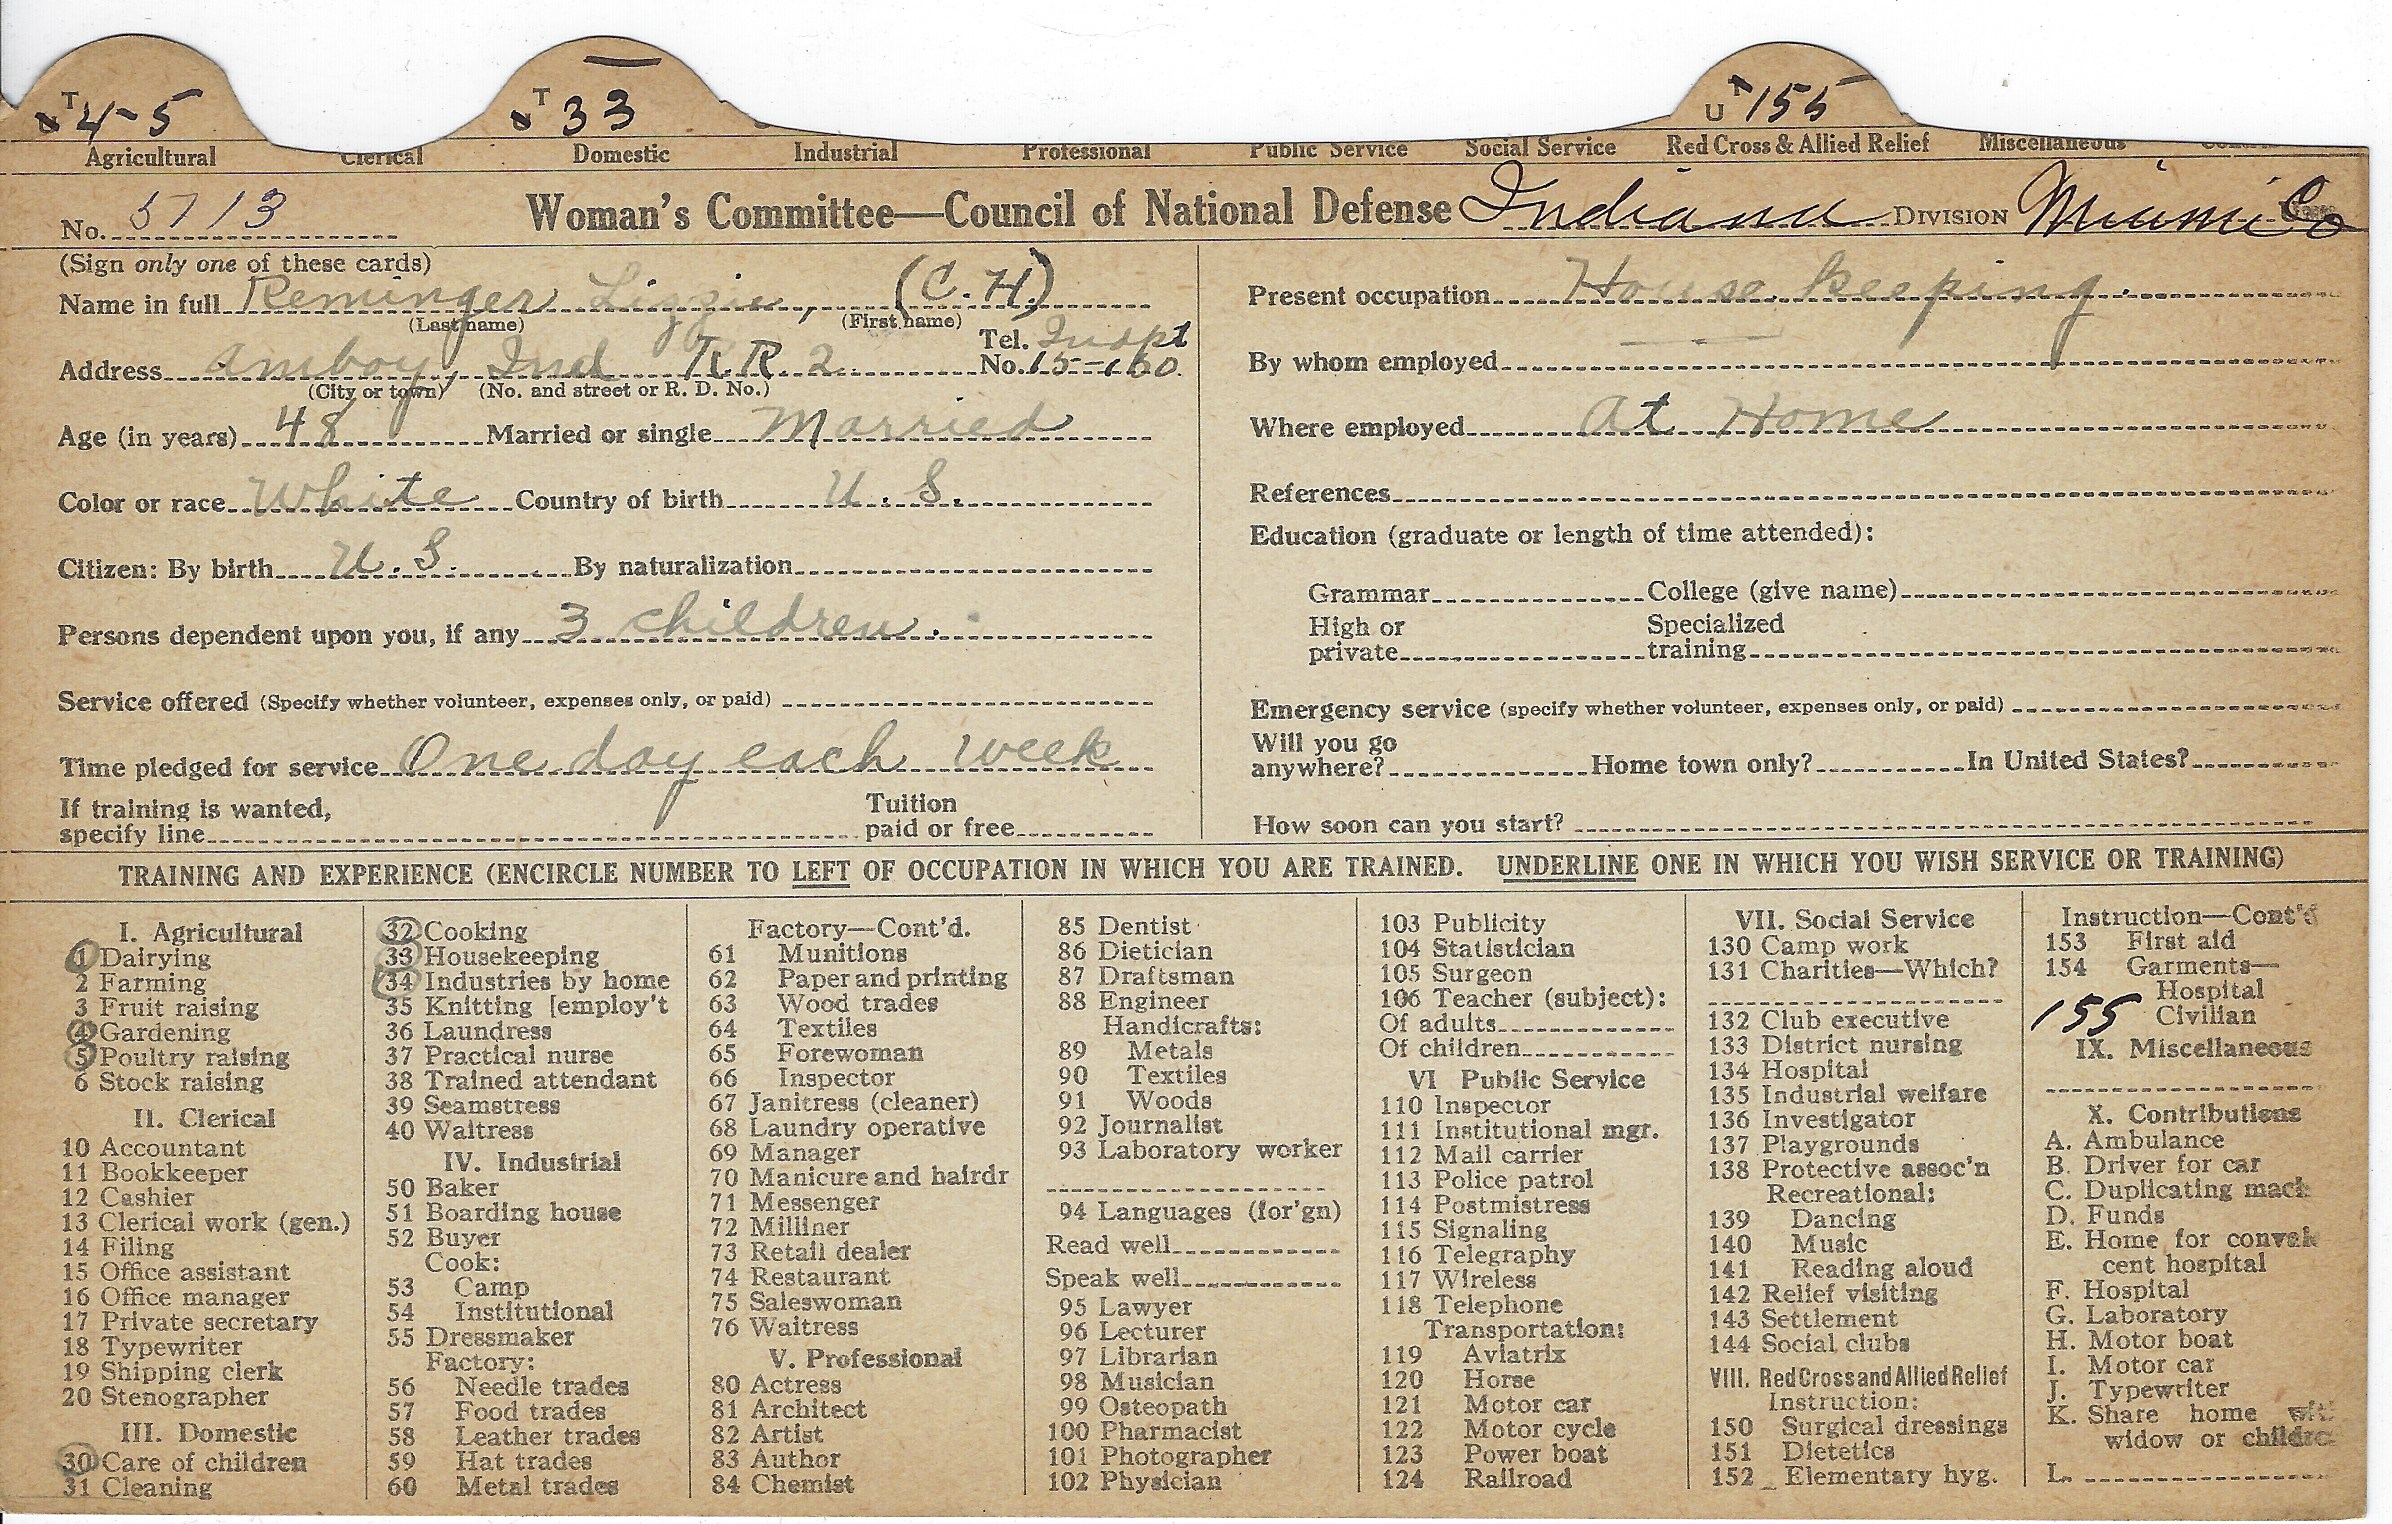 T 4-5
T 33
U 155
Agricultural Clerical Domestic Industrial Professional Public Service Social Service Red Cross & Allied Relief Miscellaneous
No. 5713 Woman's Committee—Council of National Defense Indiana DIVISION Miami Co
(Sign only one of these cards)
Name in full Reminger Lizzie, (C. H.)
(Last name) (First name)
Address Amboy, Ind R.R. 2 Tel. No. Indpt 15-160.
(City or town) (No. and street or R. D. No.)
Age (in years) 48 Married or single Married
Color or race White Country of birth U. S.
Citizen: By birth U. S. By naturalization
Persons dependent upon you, if any 3 children.
Service offered (Specify whether volunteer, expenses only, or paid)
Time pledged for service One day each week
If training is wanted,
specify line
Tuition
paid or free
Present occupation House keeping.
By whom employed
Where employed At Home
References
Education (graduate or length of time attended):
Grammar College (give name)
High or
private
Specialized
training
Emergency service (specify whether volunteer, expenses only, or paid)
Will you go
anywhere? Home town only? In United States?
How soon can you start?
TRAINING AND EXPERIENCE (ENCIRCLE NUMBER TO LEFT OF OCCUPATION IN WHICH YOU ARE TRAINED. UNDERLINE ONE IN WHICH YOU WISH SERVICE OR TRAINING)
I. Agricultural
1 Dairying
2 Farming
3 Fruit raising
4 Gardening
5 Poultry raising
6 Stock raising
II. Clerical
10 Accountant
11 Bookkeeper
12 Cashier
13 Clerical work (gen.)
14 Filing
15 Office assistant
16 Office manager
17 Private secretary
18 Typewriter
19 Shipping clerk
20 Stenographer
III. Domestic
30 Care of children
31 Cleaning
32 Cooking
33 Housekeeping
34 Industries by home
35 Knitting [employ't
36 Laundress
37 Practical nurse
38 Trained attendant
39 Seamstress
40 Waitress
IV. Industrial
50 Baker
51 Boarding house
52 Buyer
Cook:
53 Camp
54 Institutional
55 Dressmaker
Factory:
56 Needle trades
57 Food trades
58 Leather trades
59 Hat trades
60 Metal trades
Factory—Cont'd.
61 Munitions
62 Paper and printing
63 Wood trades
64 Textiles
65 Forewoman
66 Inspector
67 Janitress (cleaner)
68 Laundry operative
69 Manager
70 Manicure and hairdr
71 Messenger
72 Milliner
73 Retail dealer
74 Restaurant
75 Saleswoman
76 Waitress
V. Professional
80 Actress
81 Architect
82 Artist
83 Author
84 Chemist
85 Dentist
86 Dietician
87 Draftsman
88 Engineer
Handicrafts:
89 Metals
90 Textiles
91 Woods
92 Journalist
93 Laboratory worker
94 Languages (for'gn)
Read well
Speak well
95 Lawyer
96 Lecturer
97 Librarian
98 Musician
99 Osteopath
100 Pharmacist
101 Photographer
102 Physician
103 Publicity
104 Statistician
105 Surgeon
106 Teacher (subject):
Of adults
Of children
VI Public Service
110 Inspector
111 Institutional mgr.
112 Mail carrier
113 Police patrol
114 Postmistress
115 Signaling
116 Telegraphy
117 Wireless
118 Telephone
Transportation:
119 Aviatrix
120 Horse
121 Motor car
122 Motor cycle
123 Power boat
124 Railroad
VII. Social Service
130 Camp work
131 Charities—Which?
132 Club executive
133 District nursing
134 Hospital
135 Industrial welfare
136 Investigator
137 Playgrounds
138 Protective assoc'n
Recreational:
139 Dancing
140 Music
141 Reading aloud
142 Relief visiting
143 Settlement
144 Social clubs
VIII. Red Cross and Allied Relief
Instruction:
150 Surgical dressings
151 Dietetics
152 Elementary hyg.
Instruction—Cont'd
153 First aid
154 Garments—
Hospital
155 Civilian
IX. Miscellaneous
X. Contributions
A. Ambulance
B. Driver for car
C. Duplicating mach
D. Funds
E. Home for conval
cent hospital
F. Hospital
G. Laboratory
H. Motor boat
I. Motor car
J. Typewriter
K. Share home with
widow or childre
L.